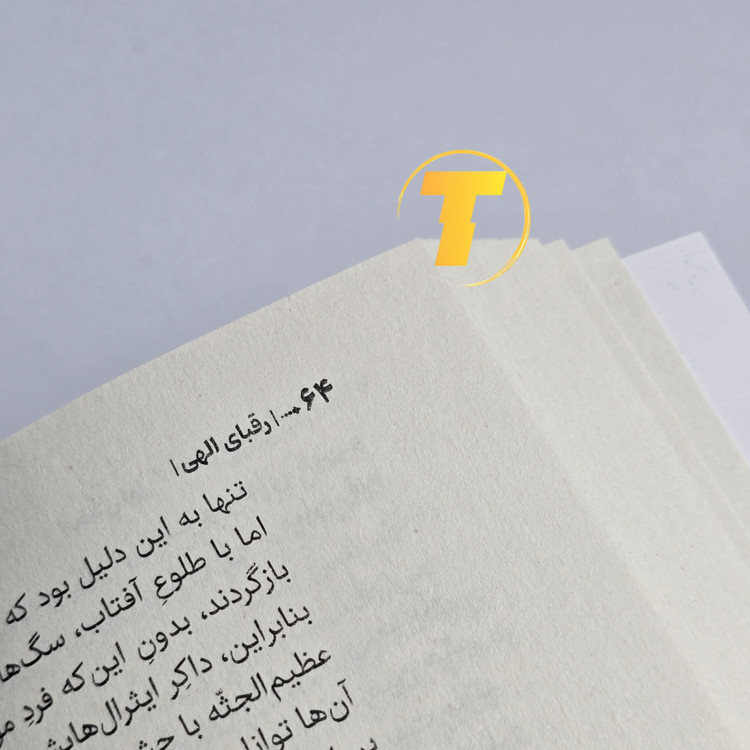 T
۶۴ ... | رقبای الهی |
تنها به این دلیل بود که
اما با طلوعِ آفتاب، سگ‌ها
بازگردند، بدونِ این‌که فردِ
بنابراین، داکِر ایثرال‌هایش
عظیم‌الجثّه با
آن‌ها